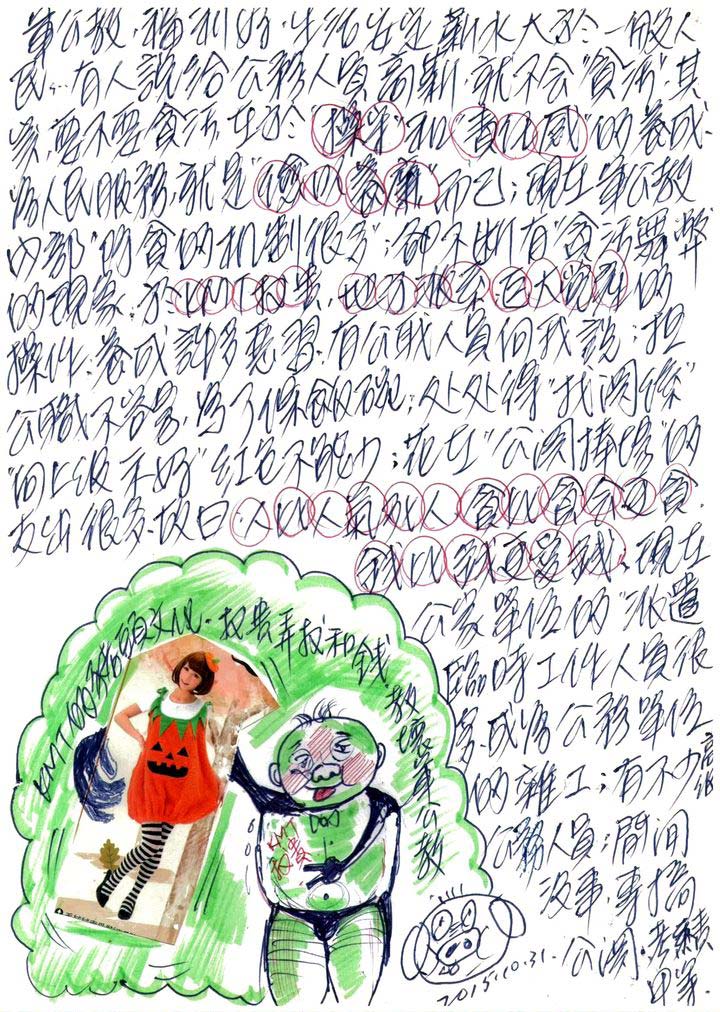 軍公教、福利好、生活安定薪水大於一般人
民、有人說給公務人員高薪就不會"貪污",其
實,要不要貪污在於"操守"和"責任感"的養成.
為人民服務,就是"德以養廉"而已;現在軍公教
內部"的貪的机制很多";卻不断有"貪污舞弊
的現象.於KMT权貴,地方派系,百大寇群的
操作.養成許多惡習,有公职人員向我說;担
公職不容易,為了保飯碗,处处得"找関係"
"向上級示好"紅包不能少;花在"公関捧場"的
支出很多.故曰:人比人氣死人.貪比貪会更貪.
錢比錢更愛錢、現在
公家單位的"派遣
臨時工作人員很
多.成為公務單位
的雜工;有不少高級
公務人員;閒閒
沒事,専搞
公関.
KMT的豬頭文化.权貴弄权和錢教壞軍公教
KMT
权貴
2015.10.31.